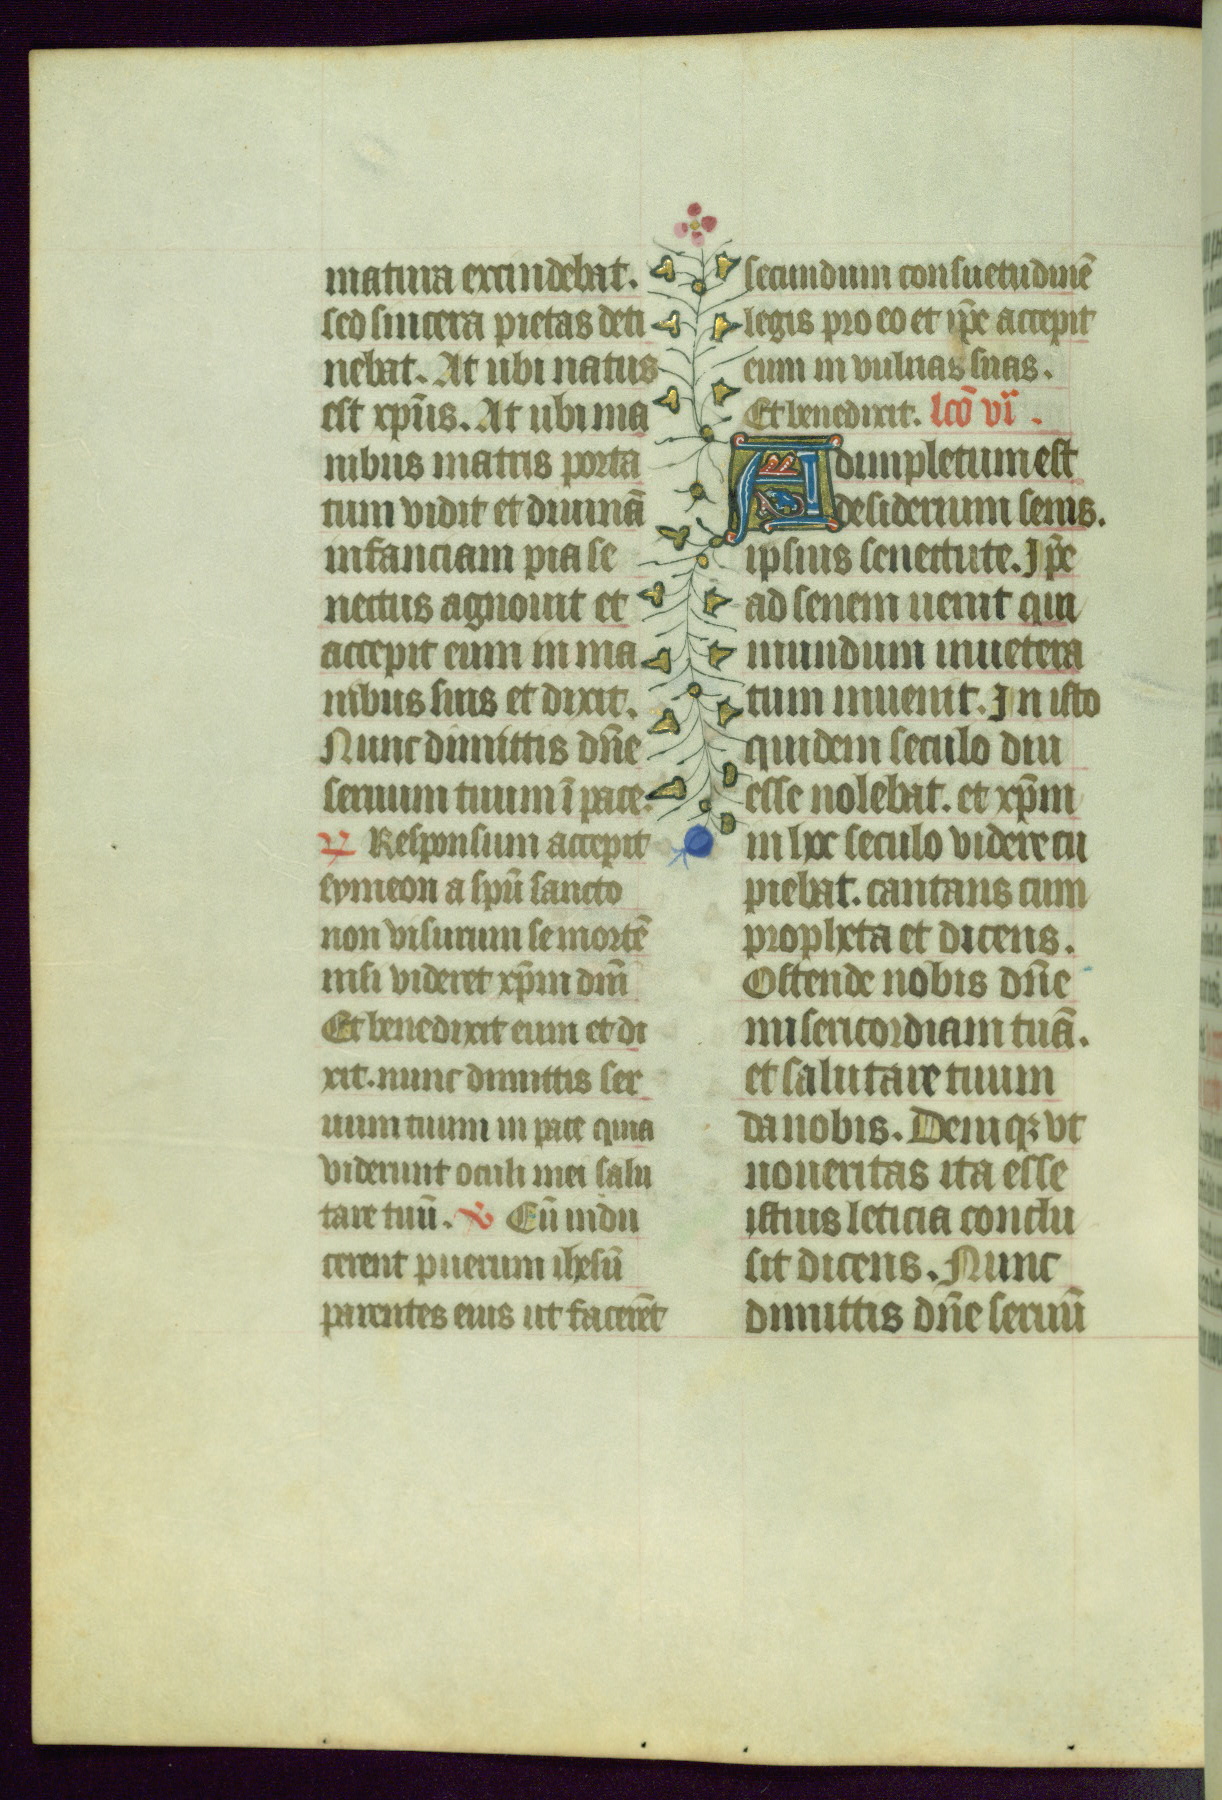 matura excindebat.
sed sincera pietas deti
nebat. At ubi natus
est xp̄us. At ubi ma
nibus matris porta
tum vidit et diuinā
infanciam pia se
nectus agnouit et
accepit eum in ma
nibus suis et dixit.
Nunc dimittis dn̄e
seruum tuum ī pace.
R Responsum accepit
symeon a spū sancto
non visurum se mortē
nisi videret xp̄m dm̄
Et benedixit eum et di
xit. nunc dimittis ser
uum tuum in pace quia
viderunt oculi mei salu
tare tuū. V Cū indu
cerent puerum ihesū
parentes eius ut facerēt
secundum consuetudinē
legis pro eo et ip̄e accepit
eum in vulnas suas.
Et benedixit. lcō vi.
Adimpletum est
desiderium senis.
ipsius senectute. Ip̄e
ad senem uenit qui
mundum inuetera
tum inuenit. In isto
quidem seculo diu
esse nolebat. et xp̄m
in hoc seculo videre cu
piebat. cantans cum
propheta et dicens.
Ostende nobis dn̄e
misericordiam tuā.
et salutare tuum
da nobis. Deniqz vt
noueritas ita esse
istius leticia conclu
sit dicens. Nunc
dimittis dn̄e seruū